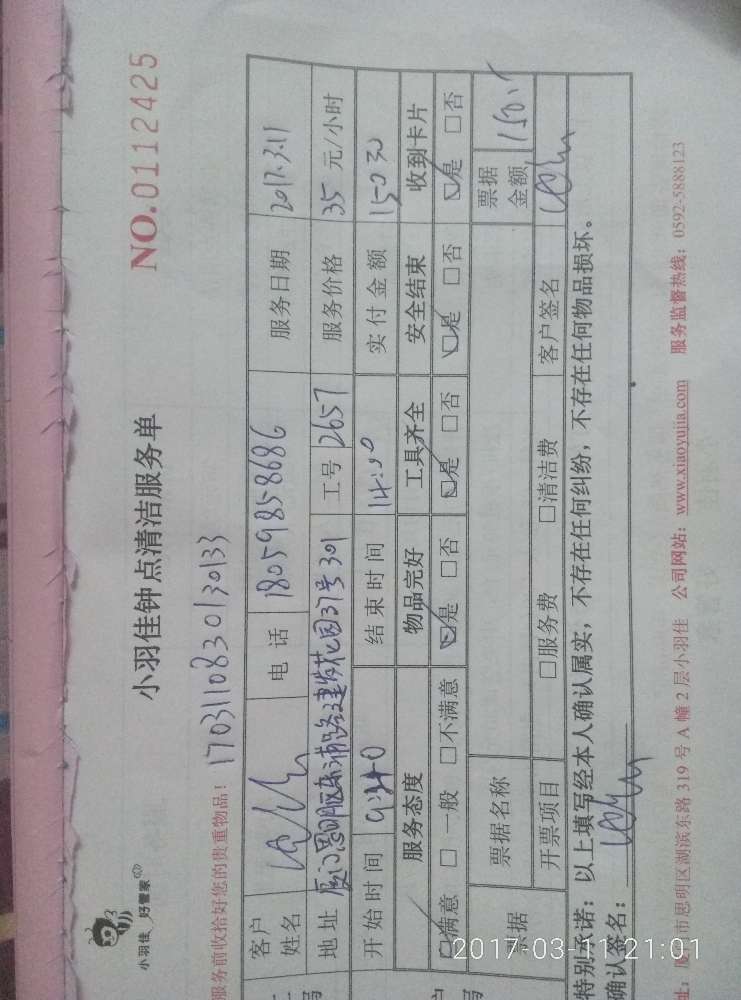 NO.0112425
小羽佳 好管家
小羽佳钟点清洁服务单
服务前收拾好您的贵重物品！ 1703110830130133
客户姓名 电话 18059858686 服务日期 2017.3.11
地址 厦门思明区东浦路建发花园37号301 工号 2657 服务价格 35 元/小时
开始时间 9:40 结束时间 14:00 实付金额 150
服务态度 物品完好 工具齐全 安全结束 收到卡片
☑满意 □一般 □不满意 ☑是 □否 ☑是 □否 ☑是 □否 ☑是 □否
票据 票据名称 票据金额 150
开票项目 □服务费 □清洁费 客户签名
特别承诺：以上填写经本人确认属实，不存在任何纠纷，不存在任何物品损坏。
确认签名：
址：厦门市思明区湖滨东路 319 号 A 幢 2 层小羽佳 公司网站：www.xiaoyujia.com 服务监督热线：0592-5888123
2017-03-11 21:01